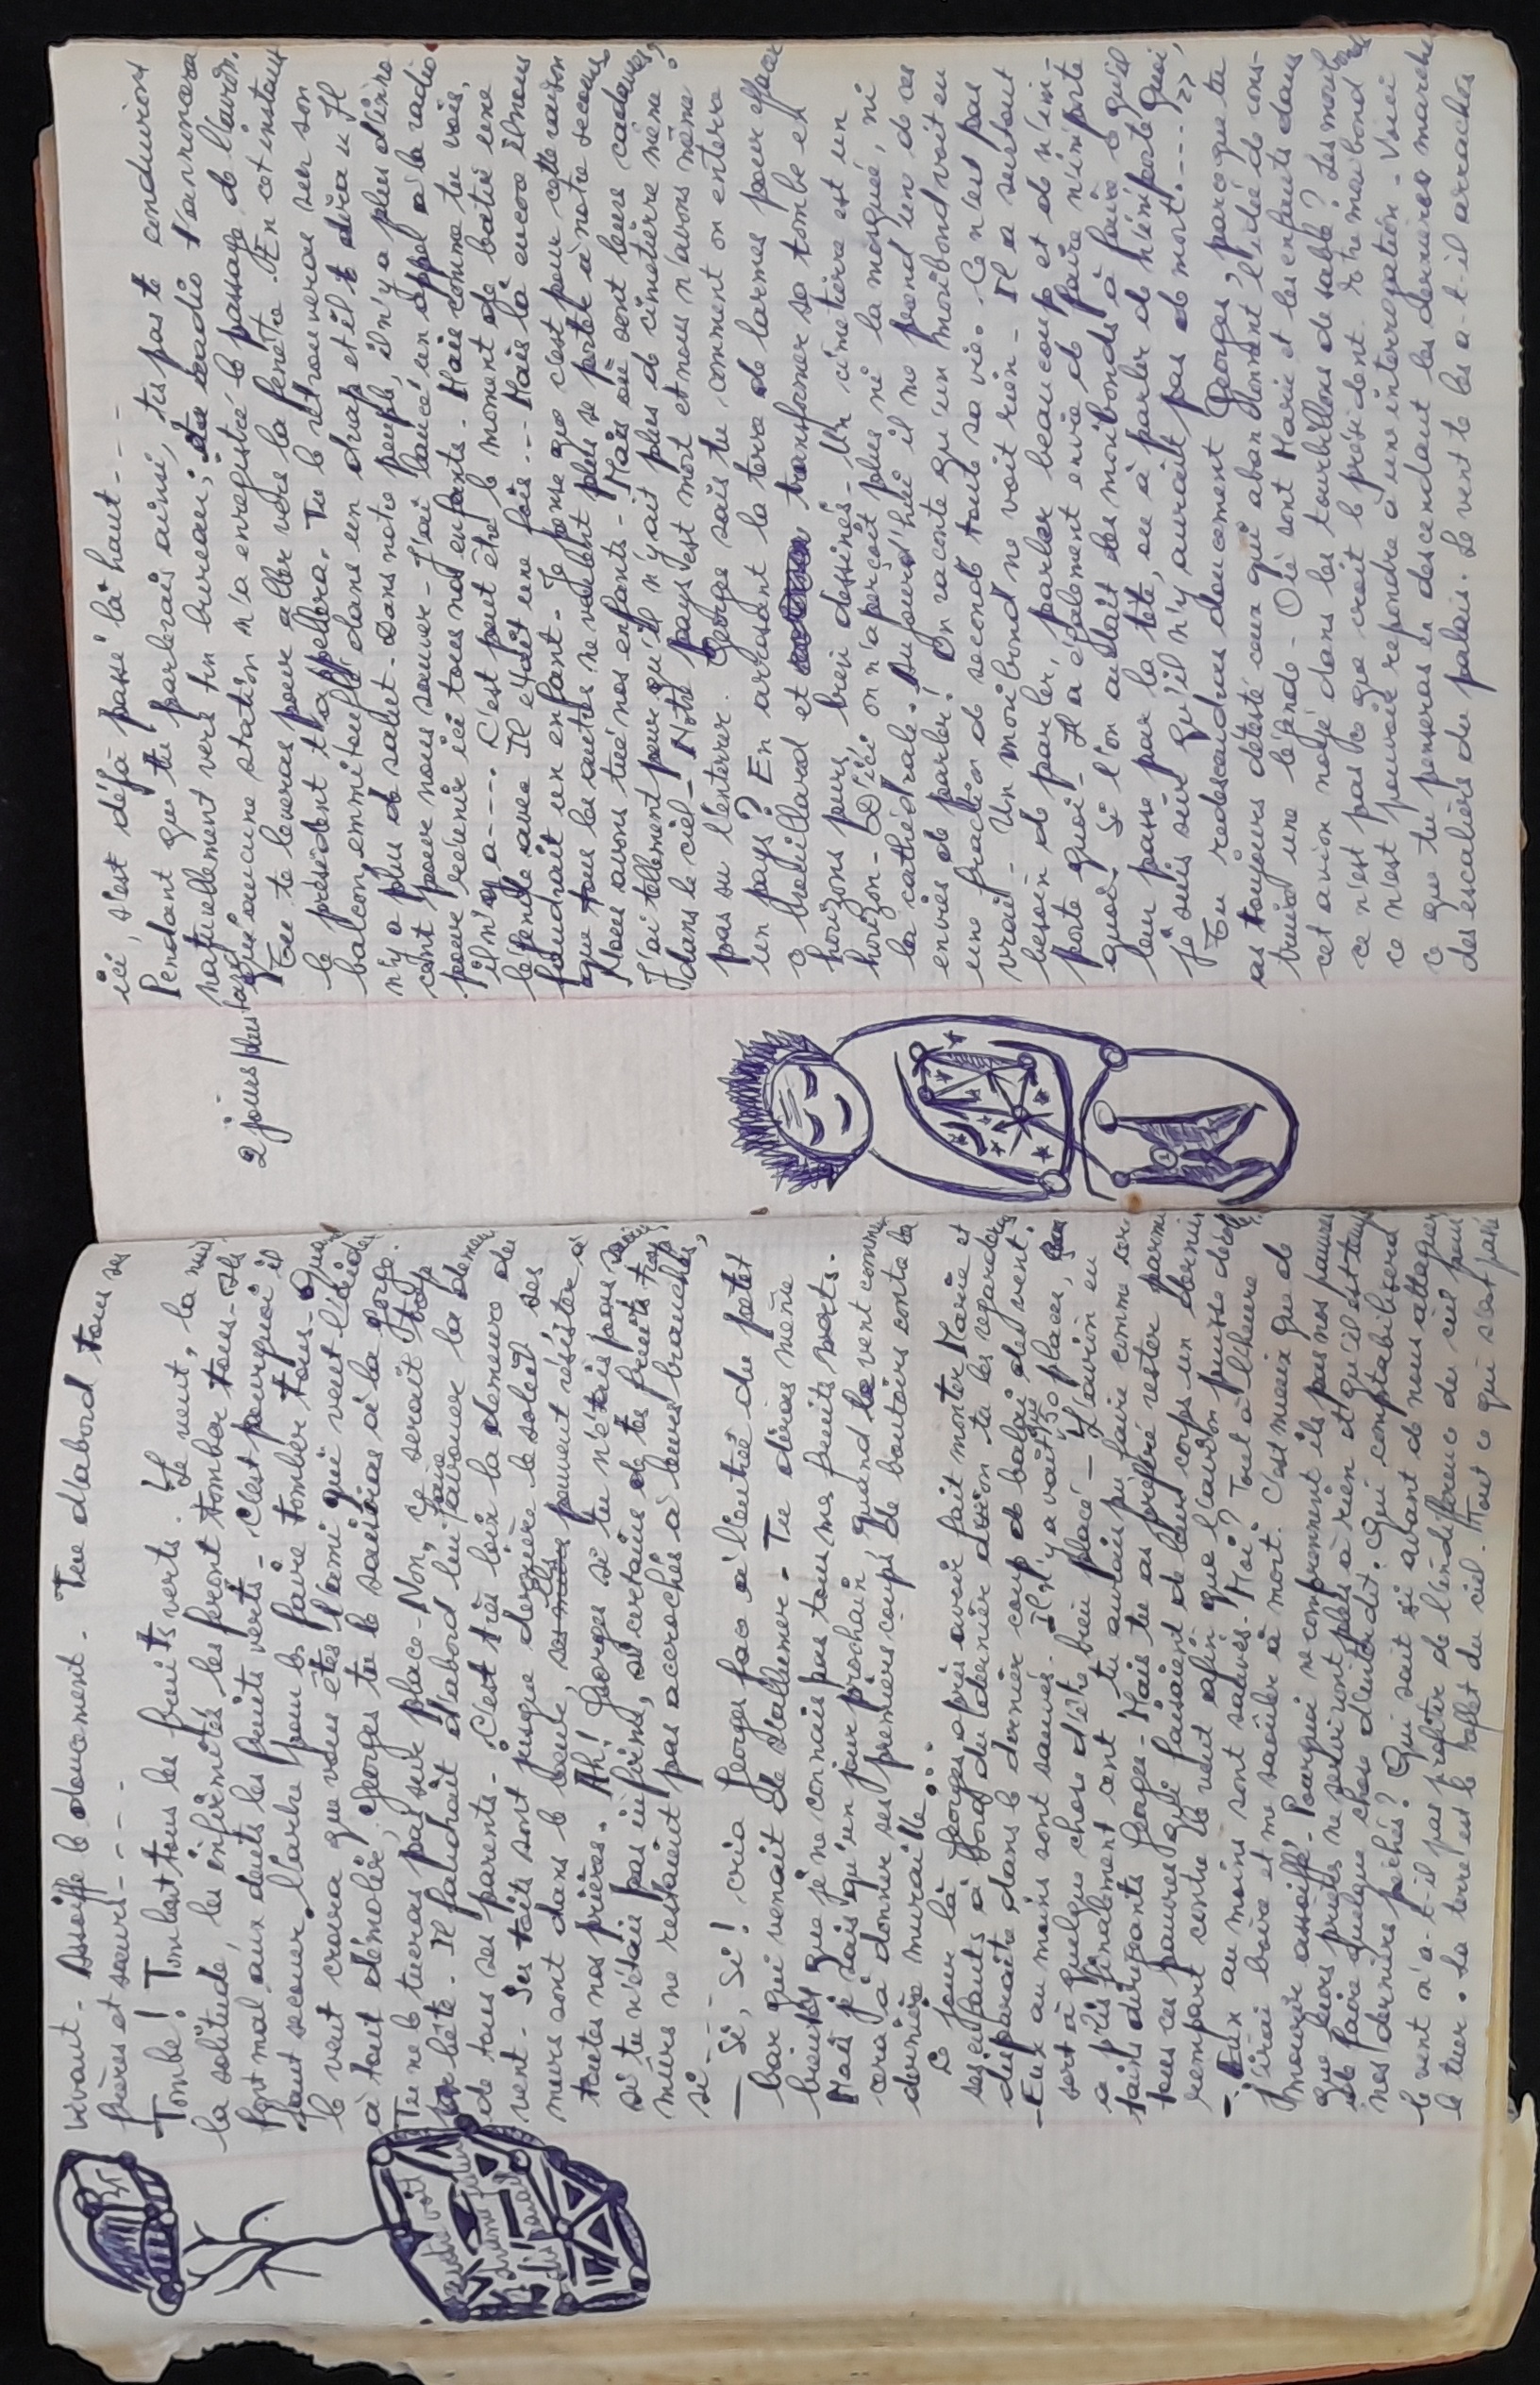 vivant. Assoiffe le doucement. Tue d'abord tous ses
frères et sœurs - - - -
- Tombe ! Tombent tous les fruits verts. Le vent, la
la solitude, les infirmités les feront tomber tous - Ils
font mal aux dents les fruits verts - C'est pourquoi il
faut secouer l'arbre pour les faire tomber tous -
le vent croira que vous êtes l'ami qui veut
à tout démolir, Georges tu le saisiras à la gorge.
Tu ne le tueras pas sur place - Non, ce serait trop
bête - Il faudrait d'abord lui faire avouer la
de tous ses parents - C'est très loin la demeure du
vent - Ses toits sont jusque derrière le soleil ses
murs sont dans le peuvent résister à
toutes nos prières. Ah ! Georges si tu n'étais pas
si tu n'étais pas infirme, si certains de tes fruits trop
mûrs ne restaient pas accrochés à leurs branches,
si - - -
- Si, si ! cria Georges face à l'entrée du petit
bar qui venait de s'allumer - Tu diras même
que je ne connais pas tous mes fruits morts.
Mais je sais qu'un jour prochain, quand le vent
à donner ses premiers coups de boutoirs contre la
dernière muraille . . .
Ce jour là Georges, après avoir fait monter Marie et
ses enfants à bord du dernier avion tu les regarderas
disparaître dans le dernier coup de balai du vent.
- Eux au moins sont sauvés - il n'y avait que 50 places,
sert à quelque chose d'être bien placé - L'avion en
a pris finalement cent - tu aurais pu faire comme
tains dirigeants Georges - Mais tu as préféré rester parmi
tous ces pauvres qui faisaient de leurs corps un dernier
rempart contre le vent afin que l'avion puisse
- Eux au moins sont sauvés - Moi ? Tout à l'heure
j'irai boire et me saoûler à mort. C'est mieux que de
mourir assoiffé - Pourquoi ne comprennent ils pas nos pauvres
que leurs prières ne serviront plus à rien et qu'il est temps
de faire quelque chose d'interdit. Qui comptabilisera
nos derniers péchés ? Qui sait si avant de nous attaquer
le vent n'a-t-il pas profité de l'indifférence du ciel pour
le tuer. La terre est le reflet du ciel. Tout ce qui s'est passé
ici, s'est déjà passé là haut - - -
Pendant que tu parlerais ainsi, tes pas te conduiront
naturellement vers ton bureau ; ta radio t'annoncera
2 jours plus tard qu'aucune station n'a enregistré le passage de l'avion.
Tu te lèveras pour aller vers la fenêtre. En cet instant
le président t'appellera. Tu le retrouveras sur son
balcon, emmitouflé dans un drap et il te dira « Il
n'y a plus de salut. Dans notre peuple, il n'y a plus d'êtres
cent pour nous sauver - J'ai lancé un appel à la radio
pour réunir ici tous nos enfants - Mais comme tu vois,
il n'y a - - - C'est peut être le moment de bâtir une
légende avec Il était une fois . . . Mais là encore il nous
faudrait un enfant - Je pense que c'est pour cette raison
que tous les autres ne veulent plus se porter à notre secours
Nous avons tué nos enfants - Mais où sont leurs cadavres,
J'ai tellement peur qu'il n'y ait plus de cimetière même
dans le ciel - Notre pays est mort et nous n'avons même
pas su l'enterrer. Georges sais tu comment on enterre
un pays ? En arrosant la terre de larmes pour effacer
ce brouillard et transformer sa tombe en
horizons purs, bien dessinés - Un cimetière est un
horizon - D'ici on n'aperçoit plus ni la mosquée, ni
la cathédrale. Aujourd'hui il me prend un de ces
envies de parler ! On raconte qu'un moribond voit en
une fraction de seconde toute sa vie. Ce n'est pas
vrai - Un moribond ne voit rien - Il a surtout
besoin de parler, parler beaucoup et de n'im-
porte quoi - Il a également envie de faire n'importe
quoi ! Si l'on aidait les moribonds à faire ce qu'il
leur passe par la tête, ou à parler de n'importe quoi,
je suis sûr qu'il n'y aurait pas de mort . - - - »
Tu redescendras doucement Georges, parce que tu
as toujours détesté ceux qui abandonnent l'idée de cons-
truire une légende - Où sont Marie et les enfants dans
cet avion noyé dans les tourbillons de sable ? Les mourir
ce n'est pas ce que croit le président. Être moribond
ce n'est pouvoir répondre à une interrogation - Voici
ce que tu penseras en descendant les dernières marches
des escaliers du palais. Le vent te les a-t-il arrachés